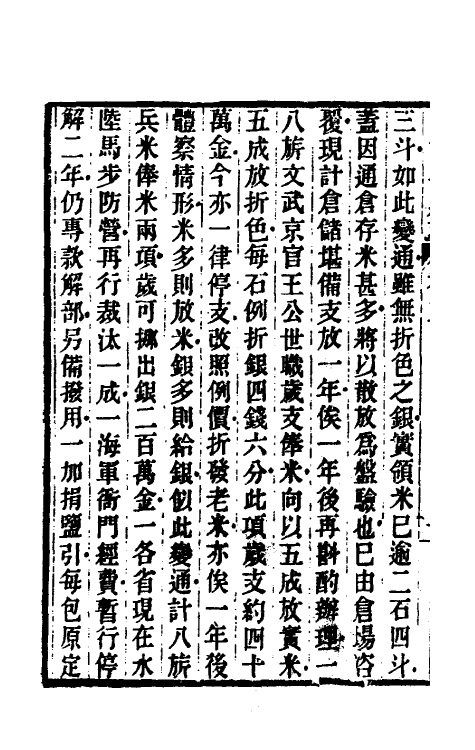 三斗如此變通雖無折色之銀實領米已逾二石四斗
蓋因通倉存米甚多將以散放爲盤驗也已由倉場咨
覆現計倉儲堪備支放一年俟一年後再斟酌辦理一
八旂文武京官王公世職歲支俸米向以五成放實米
五成放折色每石例折銀四錢六分此項歲支約四十
萬金今亦一律停支改照例價折發老米亦俟一年後
體察情形米多則放米銀多則給銀似此變通計八旂
兵米俸米兩項歲可挪出銀二百萬金一各省現在水
陸馬步防營再行裁汰一成一海軍衙門經費暫行停
解二年仍專款解部另備撥用一加捐鹽引每包原定